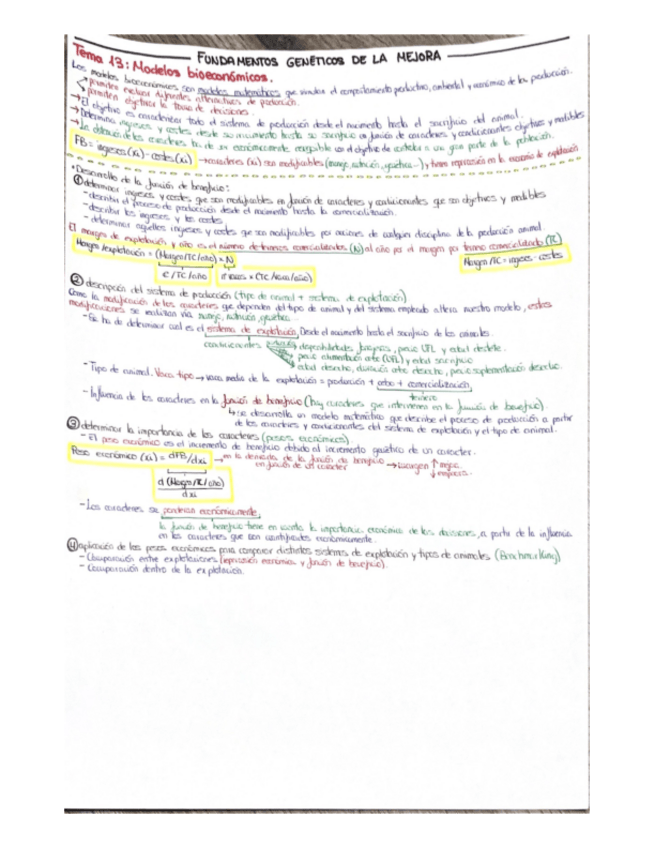 FUNDAMENTOS GENÉTICOS DE LA MEJORA
Tema 13: Modelos bioeconómicos.
Los modelos bioeconómicos son modelos matemáticos que simulan el comportamiento productivo, ambiental y económico de la producción.
permiten evaluar diferentes alternativas de producción.
permiten objetivar la toma de decisiones.
→ El objetivo es caracterizar todo el sistema de producción desde el nacimiento hasta el sacrificio del animal.
→ Determina ingresos y costes desde su nacimiento hasta su sacrificio en función de caracteres y condicionantes objetivos y medibles
→ La obtención de los caracteres ha de ser económicamente con el objetivo de a una gran parte de la población.
FB = ingresos (xi) - costes (xi) → caracteres (xi) son modificables (manejo, nutrición, genética...) y tienen repercusión en la economía de explotación
• Desarrollo de la función de beneficio:
① determinar ingresos y costes que son modificables en función de caracteres y condicionantes que son objetivos y medibles
- describir el proceso de producción desde el nacimiento hasta la comercialización.
- describir los ingresos y los costes
- determinar aquellos ingresos y costes que son modificables por acciones de cualquier disciplina de la producción animal.
El margen de explotación y año es el número de terneros comercializados (N) al año por el margen por ternero comercializado (TC)
Margen/explotación = (Margen/TC/año) × N
Margen/TC = ingresos - costes
€/TC/año
nº vacas × (TC/vaca/año)
② descripción del sistema de producción (tipo de animal + sistema de explotación)
Como la modificación de los caracteres que dependen del tipo de animal y del sistema empleado altera nuestro modelo, estas
modificaciones se realizan vía manejo, nutrición, genética...
- Se ha de determinar cual es el sistema de explotación. Desde el nacimiento hasta el sacrificio de los animales.
condicionantes disponibilidades forrajeras, precio UFL y edad destete.
precio alimentación cebo (UFL) y edad sacrificio
edad desecho, duración cebo desecho, precio suplementación desecho.
- Tipo de animal. Vaca tipo → vaca media de la explotación = producción + cebo + comercialización.
ternero
- Influencia de los caracteres en la función de beneficio (hay caracteres que intervienen en la función de beneficio).
↳ se desarrolla un modelo matemático que describe el proceso de producción a partir
de los caracteres y condicionantes del sistema de explotación y el tipo de animal.
③ determinar la importancia de los caracteres (pesos económicos).
- El peso económico es el incremento de beneficio debido al incremento genético de un caracter.
Peso económico (xi) = dFB/dxi → es la derivada de la función de beneficio en función de un caracter → margen ↑ mejora ↓ empeora.
d (Margen/TC/año)
dxi
- Los caracteres se ponderan económicamente.
la función de beneficio tiene en cuenta la importancia económica de las decisiones, a partir de la influencia
en los caracteres que son cuantificados económicamente.
④ aplicación de los pesos económicos para comparar distintos sistemas de explotación y tipos de animales (Benchmarking)
- Comparación entre explotaciones (repercusión económica y función de beneficio).
- Comparación dentro de la explotación.